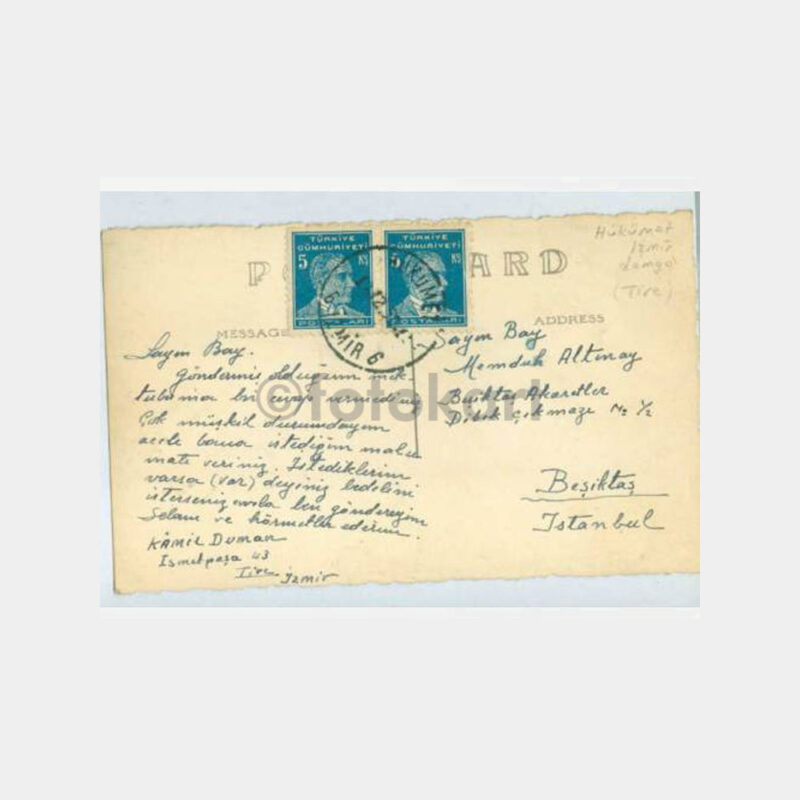 TÜRKİYE
CÜMHURİYETİ
5 KŞ
POSTALARI
TÜRKİYE
CÜMHURİYETİ
5 KŞ
POSTALARI
İZMİR 6
POST CARD
Hükümet
İzmir
damga
(Tire)
MESSAGE
ADDRESS
Sayın Bay.
Göndermiş olduğum mek
tubuma bir cevap vermediniz
Çok müşkil durumdayım
acele bana istediğim malu
matı veriniz. İstediklerim
varsa (var) deyiniz bedelini
isterseniz evvela ben göndereyim
Selam ve hörmetler ederim.
Kâmil Duman
İsmetpaşa 43
Tire İzmir
Sayın Bay
Memduh Altınay
Beşiktaş Akaretler
Dibek Çıkmazı No 1/2
Beşiktaş
İstanbul
©fotokart